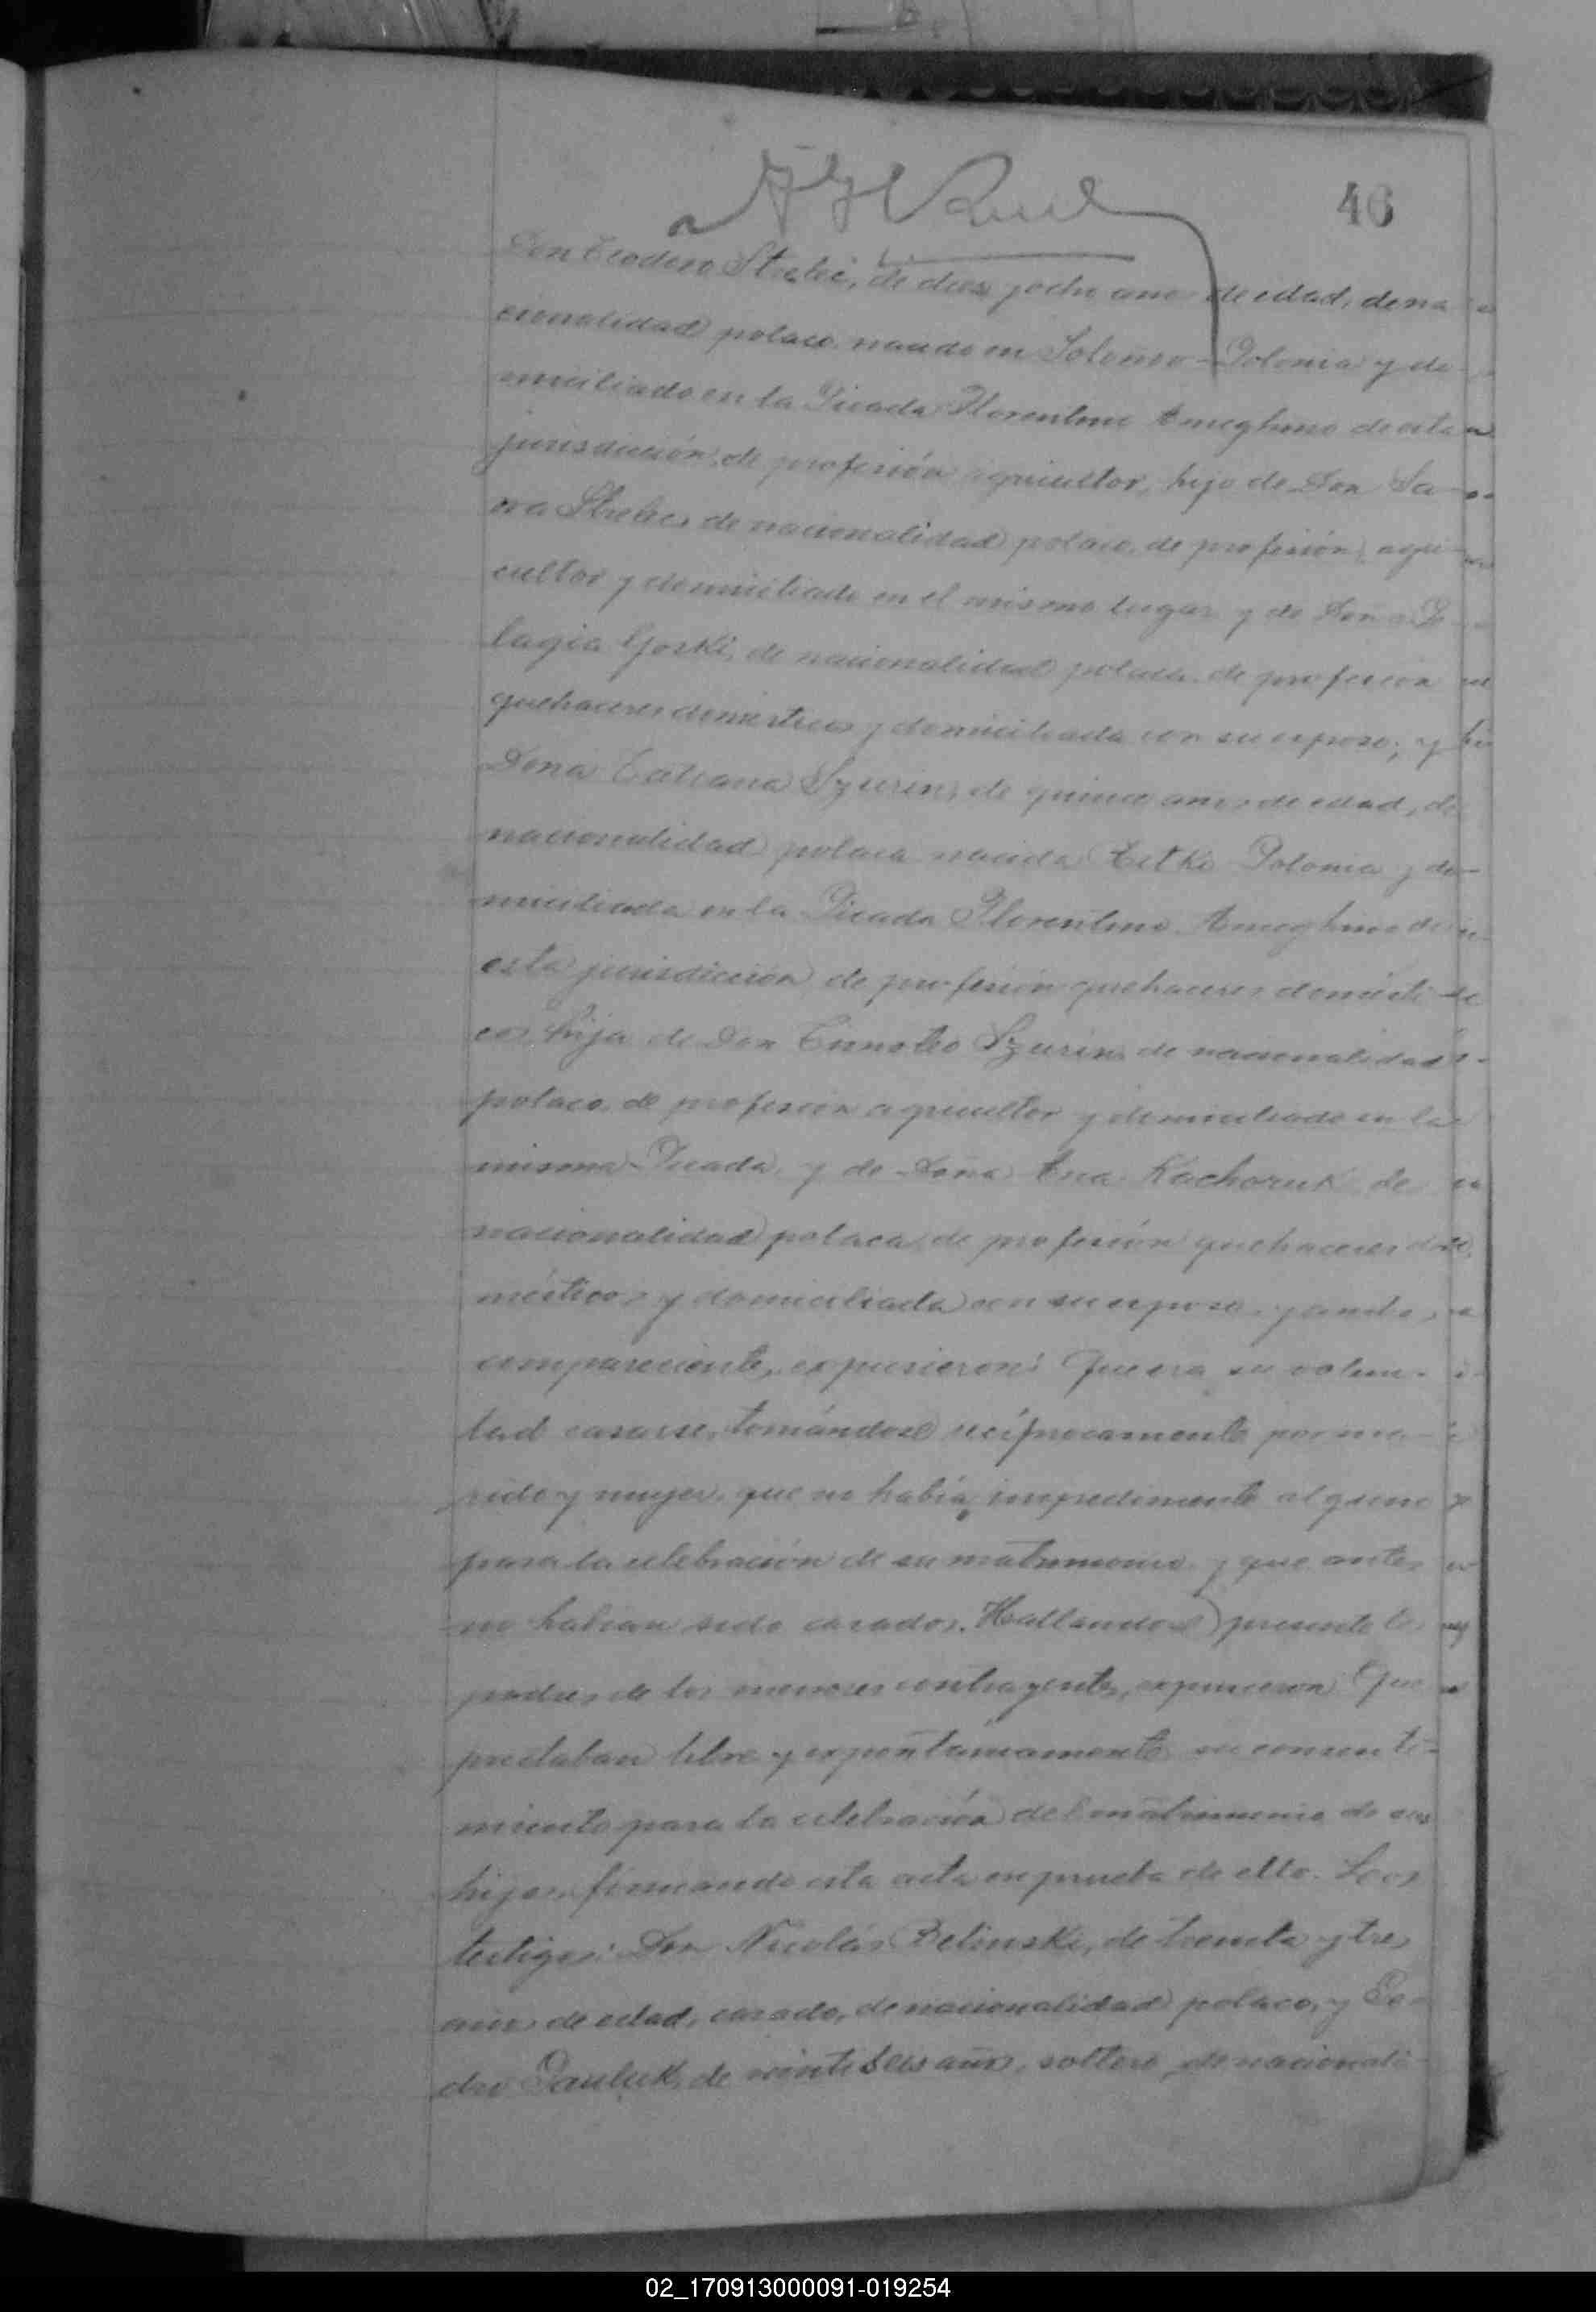 46
Don Teodoro Strelec, de diez y ocho años de edad, de na
cionalidad polaco, nacido en Polonia y do
miciliado en la Picada Florentino Ameghino de esta
jurisdicción, de profesión agricultor, hijo de Don Sa
va Strelec, de nacionalidad polaco, de profesión agri
cultor y domiciliado en el mismo lugar y de Doña Pe
lagia Gorski, de nacionalidad polaca, de profesión
quehaceres domésticos y domiciliada con su esposo; y
Doña Tatiana Szurin, de quince años de edad, de
nacionalidad polaca nacida Polonia y do-
miciliada en la Picada Florentino Ameghino de
esta jurisdicción, de profesión quehaceres domésti
cos hija de Don Timoteo Szurin, de nacionalidad
polaco, de profesión agricultor y domiciliado en la
misma Picada, y de Doña Ana Kachoruk, de
nacionalidad polaca, de profesión quehaceres do
mésticos y domiciliada con su esposo, y ambos
comparecientes, expusieron: Que era su volun-
tad casarse, tomándose recíprocamente por ma-
rido y mujer, que no había impedimento alguno
para la celebración de su matrimonio y que antes
no habian sido casados. Hallandose presente los
padres de los menores contrayentes, expusieron: Que
prestaban libre y expontáneamente su consenti-
miento para la celebración del matrimonio de sus
hijos, firmando esta acta en prueba de ello. Los
testigos: Don Nicolás Belinski, de treinta y tres
años de edad, casado, de nacionalidad polaco, y Pe-
dro Pauluk, de veinte seis años, soltero, de nacionali
02_170913000091-019254